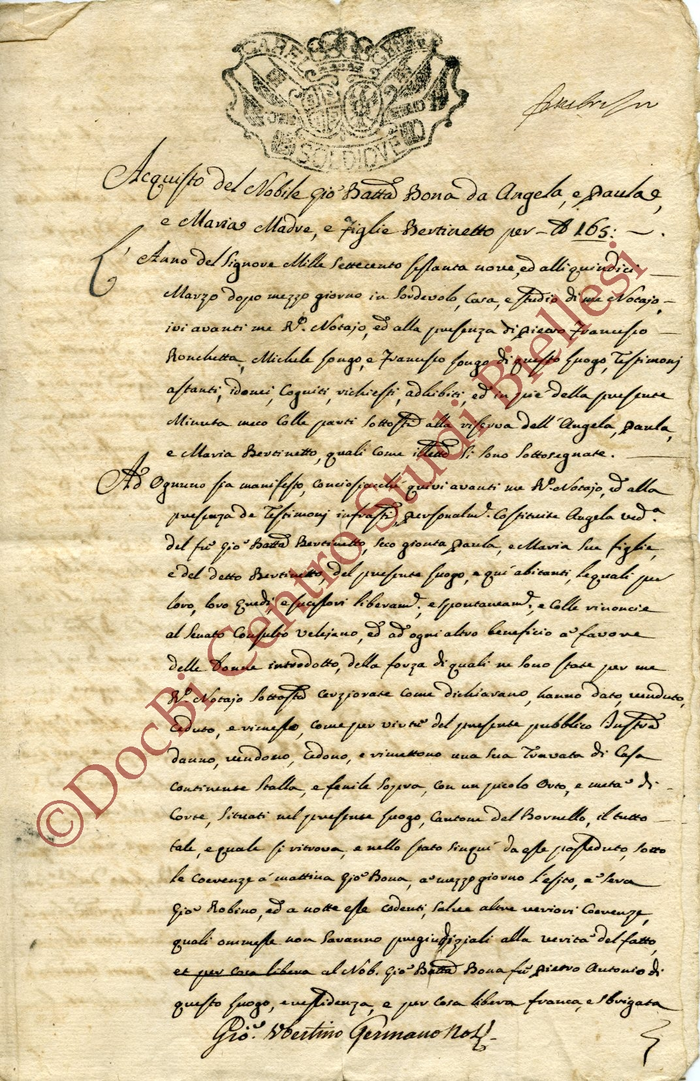 SOLDI DVE
Acquisto del Nobile Gio: Batta Bona da Angela, e Paula,
e Maria Madre, e Figlie Bertinetto per 165:
L' Anno del Signore Mille Settecento sessanta nove, ed alli quindici
Marzo dopo mezzo giorno in Sordevolo, Casa, e studio di me Notajo,
ivi avanti me Rº. Notajo, ed alla presenza di Pietro Francesco
Ronchetta, Michele Longo, e Francesco Longo di questo Luogo, Testimonj
astanti, idonei, Cogniti, richiesti, adhibiti, ed in pie della presente
Minuta meco Colle parti Sottosti alla riserva dell' Angela, Paula,
e Maria Bertinetto, quali come illette Si Sono Sottosegnate.
Ad Ognuno sia manifesto, Conciosiacchè quivi avanti me Rº. Notajo, ed alla
presenza de Testimonj infrasti, personalmte. Costituite Angela veda.
del fu Gio: Batta Bertinetto, Seco gionta Paula, e Maria Sue figlie,
e del detto Bertinetto del presente Luogo, e qui abitanti, le quali per
loro, loro Eredi, e sucessori liberamte., e spontaneamte., e Colle rinoncie
al Senato Consulto Vellejano, ed ad ogni altro beneficio a' favore
delle Donne introdotto, della forza di quali ne Sono state per me
Rº. Notajo Sottosto Cerziorate Come dichiarano, hanno dato, venduto,
Ceduto, e rimesso, come per virtù del presente pubblico Instro
danno, vendono, Cedono, e rimettono una Sua Travata di Casa
Continente Stalla, e fenile Sopra, con un picolo Orto, e meta' di
Corte, Situati nel presente Luogo, Cantone del Bornello, il tutto
tale, e quale si ritrova, e nello stato Sinquì da esse posseduto, Sotto
le Coerenze a' mattina Gio: Bona, a' mezzo giorno l'esito, a' Sera
Gio: Robino, ed a notte esse Cedenti, Salve altre veriori Coerenze,
quali ommesse non Saranno pregiudiziali alla verita' del fatto,
et per Cosa libera al Nob. Gio: Batta Bona fu Pietro Antonio di
questo Luogo, e residenza, e per Cosa libera franca, e sbrigata
Gio: Vbertino Germano Notº.
©DocBi Centro Studi Biellesi